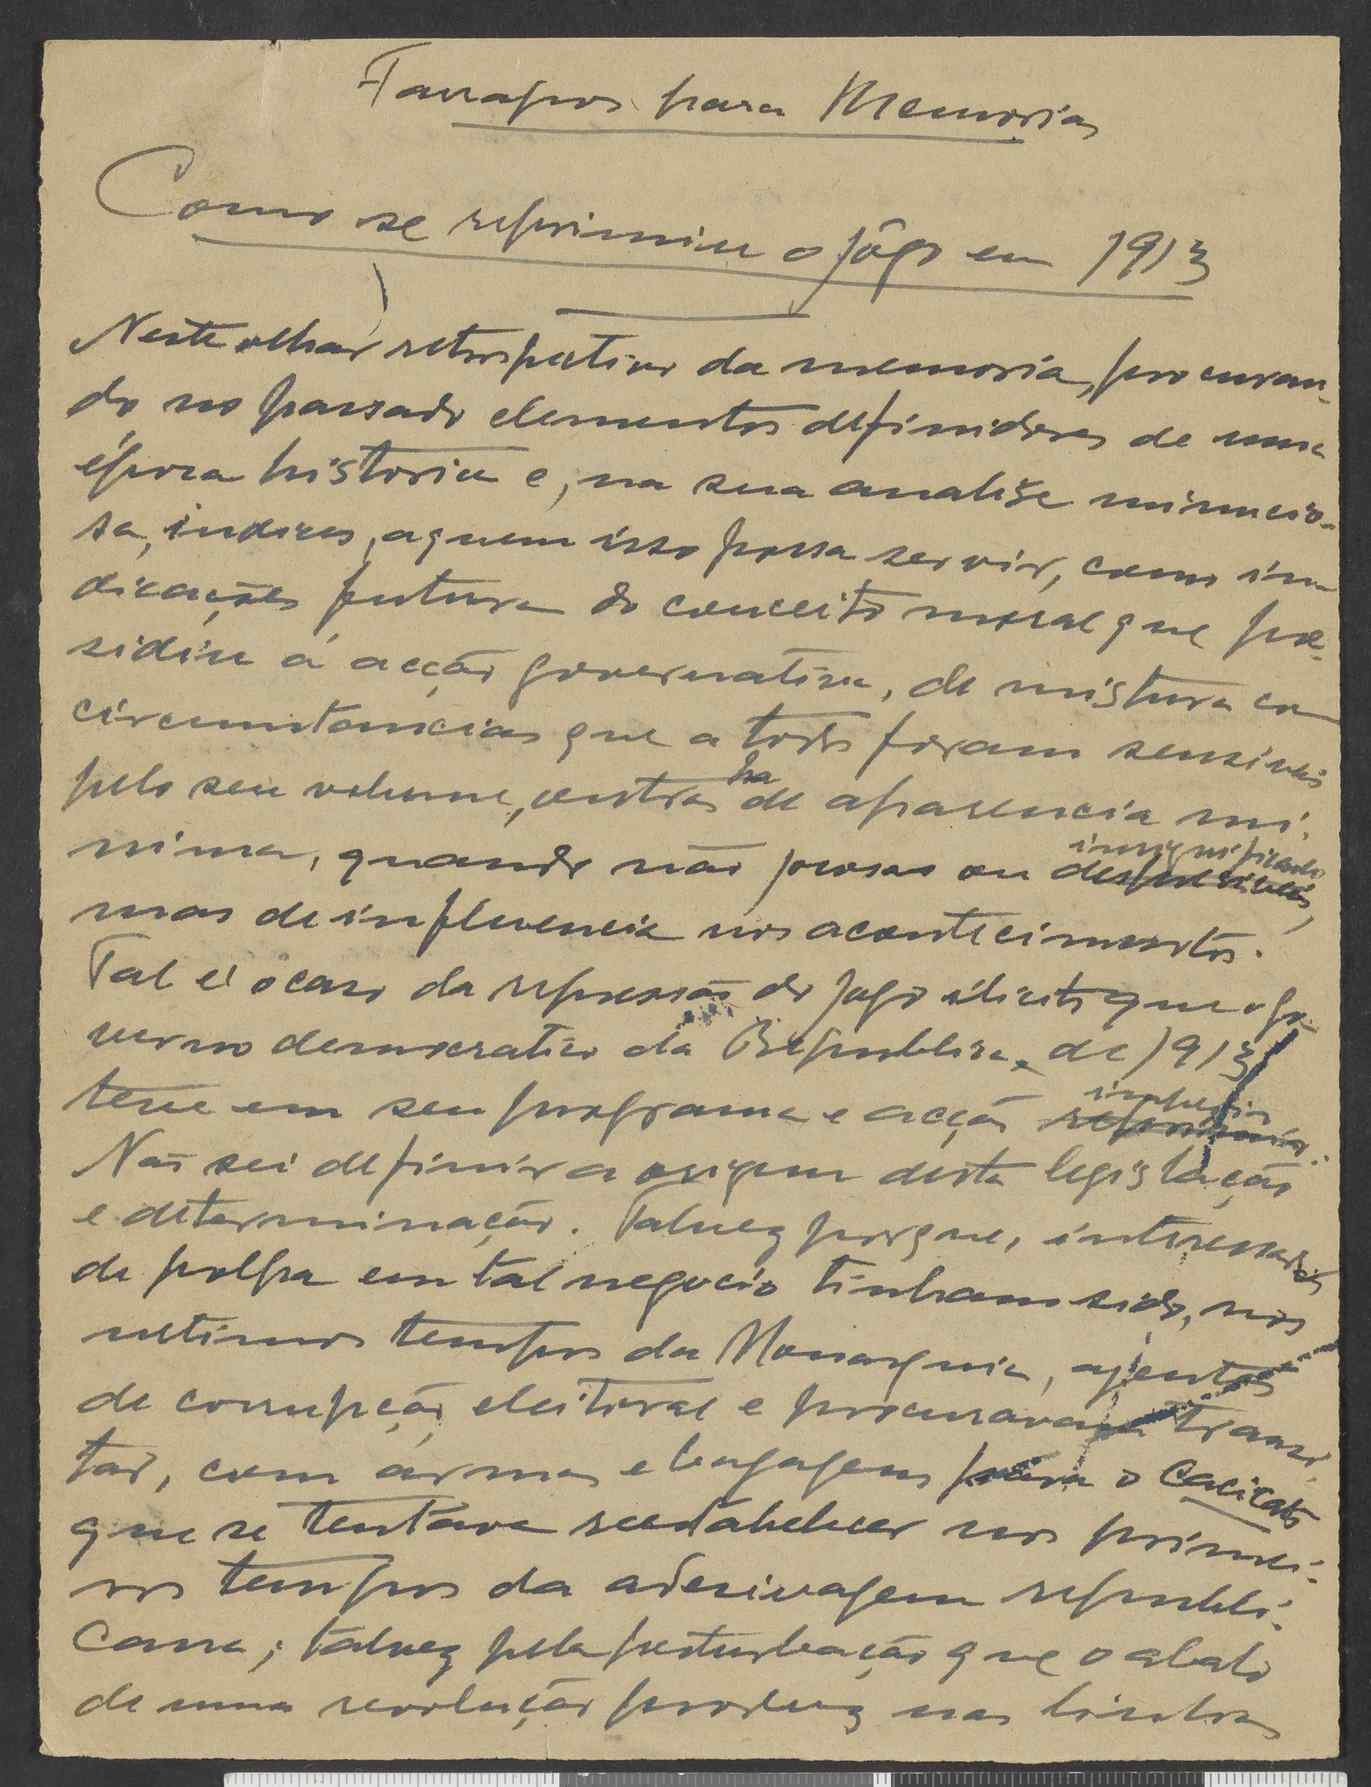 Farrapos para Memorias
Como se reprimiu o jôgo em 1913
Neste olhar retrospectivo da memoria, procuran-
do no passado elementos definidores de uma
época historica e, na sua analise minucio-
sa, indices, a quem isso possa servir, como in-
dicações futura do conceito moral que pre-
sidiu á acção governativa, de mistura com
circumtancias que a todos foram sensiveis
pelo seu volume, outras ha de aparencia mi-
nima, quando não jocosas ou insignificantes,
mas de influencia nos acontecimentos.
Tal é o caso da repressão do jogo ilicito que o go-
verno democratico da Republica, de 1913
teve em seu programa e acção
Não sei definir a origem desta legislação
e determinação. Talvez porque, interessados
de polpa em tal negocio tinham sido, nos
ultimos tempos da Monarquia, ajentes
de corrupção eleitoral e procuravam transi-
tar, com armas e bagagens para o Cacicato
que se tentava restabelecer nos primei-
ros tempos da adesivagem republi-
cana; talvez pela perturbação que o abalo
de uma revolução produz nas